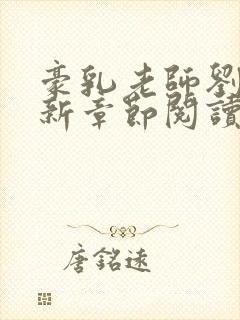 豪乳老師劉
新章節閱讀
唐銘遠